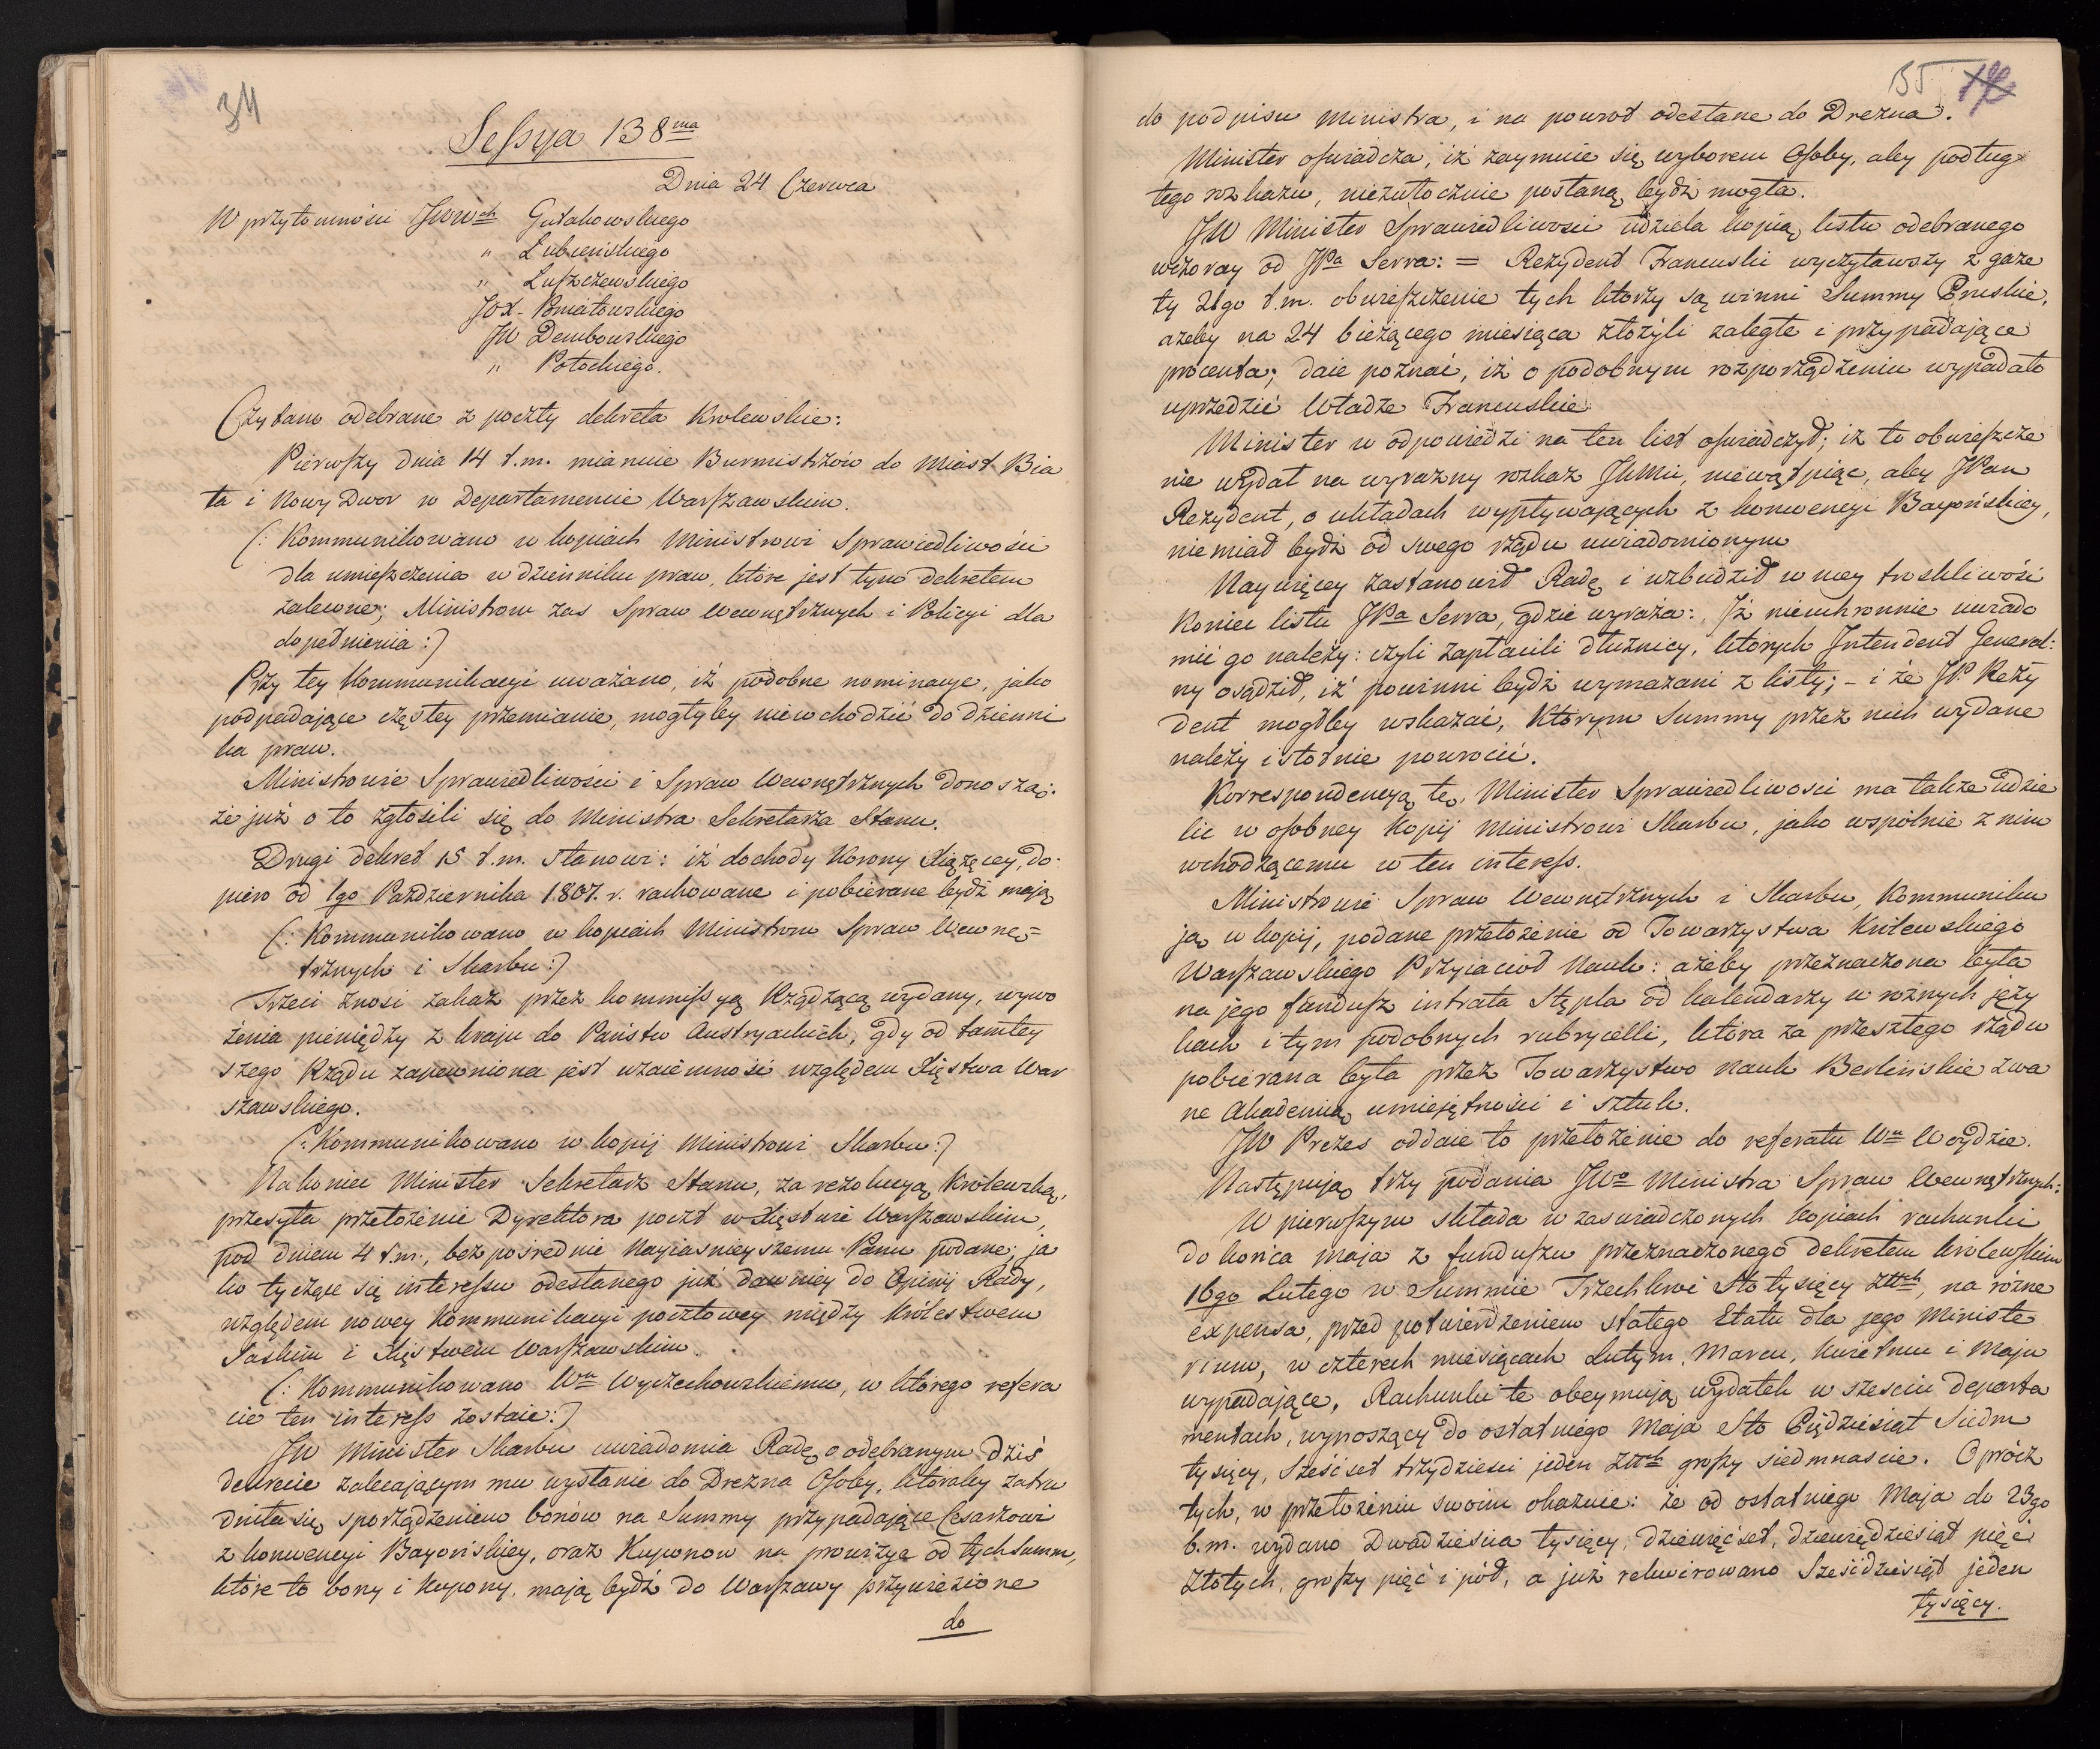 34
Sessya 138ma
Dnia 24 Czerwca
W przytomności JWWch Gutakowskiego
" Łubieńskiego
" Luszczewskiego
JOX. Poniatowskiego
JW Dembowskiego
" Potockiego.
Czytano odebrane z poczty dekreta Krolewskie:
Pierwszy dnia 14 t.m. mianuie Burmistrzów do Miast Bia
ła i Nowy Dwor w Departamencie Warszawskim.
(: Kommunikowano w kopiach Ministrowi Sprawiedliwości
dla umieszczenia w dzienniku praw, które jest tymo dekretem
zalecone; Ministrom zas Spraw Wewnętrznych i Policyi dla
dopełnienia :)
Przy tey Kommunikacyi uważano, iż podobne nominacye, jako
podpadające częstey przemianie, mogłyby niewchodzić do dzienni
ka praw.
Ministrowie Sprawiedliwości i Spraw Wewnętrznych donoszą:
że już o to zgłosili się do Ministra Sekretarza Stanu.
Drugi dekret 15 t.m. stanowi: iż dochody Korony Xiążęcey, do-
piero od 1go Października 1807. r. rachowane i pobierane bydź mają
(: Kommunikowano w kopiach Ministrom Spraw Wewnę=
trznych i Skarbu :)
Trzeci znosi zakaz przez kommissyą Rządzącą wydany, wywo
żenia pieniędzy z kraju do Państw Austryackich, gdy od tamtey
szego Rządu zapewniona jest wzaiemność względem Xięstwa War
szawskiego.
(: Kommunikowano w kopij Ministrowi Skarbu :)
Nakoniec Minister Sekretarz Stanu, za rezolucyą Królewską,
przesyła przełożenie Dyrektora poczt w Xięstwie Warszawskim,
pod dniem 4 t.m., bezpośrednie Nayiaśnieyszemu Panu podane, ja
ko tyczące się interessu odesłanego już dawniey do Opinij Rady,
względem nowey Kommunikacyi pocztowey między Królestwem
Saskim i Xięstwem Warszawskim.
(: Kommunikowano Wu Wyczechowskiemu, w którego refera
cie ten interess zostaie :)
JW Minister Skarbu uwiadomia Radę o odebranym dziś
dekrecie zalecającym mu wysłanie do Drezna Osoby, któraby zatru
dniła się sporządzeniem bonów na Summy przypadające Cesarzowi
z konwencyi Bayońskiey, oraz Kuponow na prowizye od tych summ,
które to bony i kupony, mają bydź do Warszawy przywiezione
do
35 18
do podpisu Ministra, i na powrot odesłane do Drezna.
Minister oświadcza, iż zaymuie się wyborem Osoby, aby podług
tego rozkazu, niezwłocznie posłaną bydź mogła.
JW Minister Sprawiedliwosci udziela kopią listu odebranego
wczoray od JPa Serra: = Rezydent Francuski wyczytawszy z gaze
ty 21go t.m. obwieszczenie tych którzy są winni Summy Pruskie,
ażeby na 24 bieżącego miesiąca złożyli zaległe i przypadające
procenta; daie poznać, iż o podobnym rozporządzeniu wypadało
uprzedzić Władze Francuskie.
Minister w odpowiedzi na ten list oświadczył; iż to obwieszcze
nie wydał na wyraźny rozkaz JKMci, niewątpiąc, aby JPan
Rezydent, o układach wypływających z konwencyi Bayońskiey,
nie miał bydź od swego rządu uwiadomionym
Naywięcey zastanowił Radę i wzbudził w niey troskliwość
Koniec listu JPa Serra, gdzie wyraża: Jż nieuchronnie uwiado
mić go należy: czyli zapłacili dłużnicy, ktorych Jntendent General:
ny osądził, iż powinni bydź wymazani z listy; - i że JP. Rezy
dent mogłby wskazać, Ktorym Summy przez nich wydane
należy istotnie powrocić.
Korrespondencyą tę, Minister Sprawiedliwosci ma także udzie
lić w osobney Kopij Ministrowi Skarbu, jako wspólnie z nim
wchodzącemu w ten interess.
Ministrowie Spraw Wewnętrznych i Skarbu, Kommuniku
ją w kopij, podane przełożenie od Towarzystwa Królewskiego
Warszawskiego Przyiaciół Nauk: ażeby przeznaczona była
na jego fundusz intrata Stępla od kalendarzy w roznych języ
kach i tym podobnych rubrycelli, która za przeszłego rządu
pobierana była przez Towarzystwo Nauk Berlińskie zwa
ne Akademią umiejętności i sztuk.
JW Prezes oddaie to przełożenie do referatu Wu Woydzie.
Następują trzy podania JWo Ministra Spraw Wewnętrznych:
W pierwszym składa w zaświadczonych kopiach rachunki
do końca Maja z funduszu przeznaczonego dekretem Królewskim
16go Lutego w Summie Trzechkroć Sto tysięcy Złłch, na rózne
expensa, przed potwierdzeniem stałego Etatu dla jego Ministe
rium, w czterech miesięcach Lutym, Marcu, Kwietniu i Maju
wypadające, Rachunki te obeymują wydatek w sześciu Departa
mentach, wynoszący do ostatniego Maja Sto Pięćdziesiąt Siedm
tysięcy, Sześćset trzydzieści jeden Złłch groszy siedmnascie. Oprócz
tych, w przełożeniu swoim okazuie: że od ostatniego Maja do 23go
b.m. wydano Dwadzieścia tysięcy, dziewięćset, dziewięćdziesiąt pięć
złotych, groszy pięć i pół, a już rekwirowano Sześćdziesiąt jeden
tysięcy.